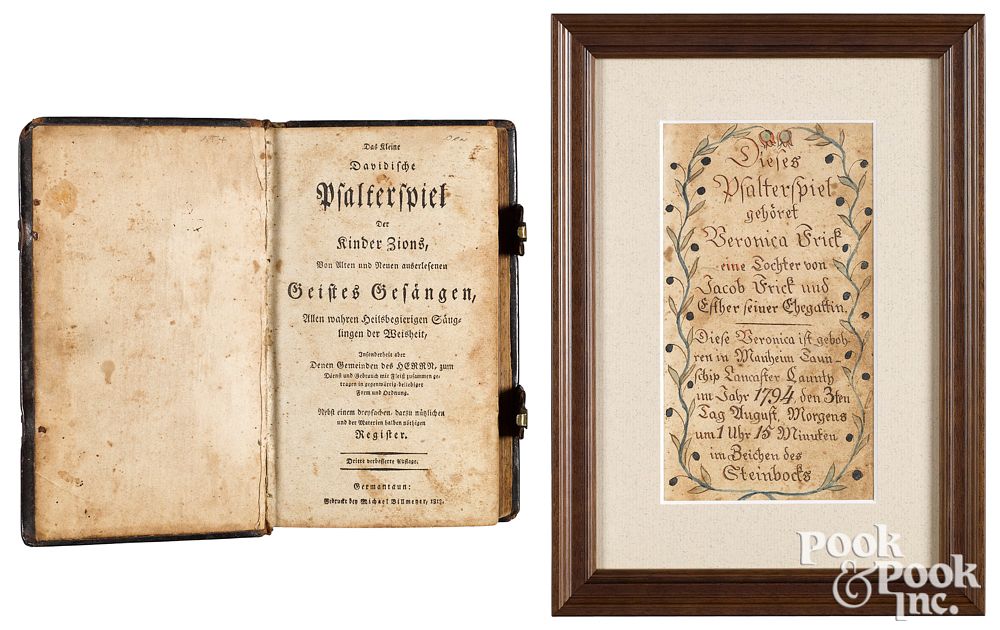 Das Kleine
Davidische
Psalterspiel
Der
Kinder Zions,
Von Alten und Neuen auserlesenen
Geistes Gesängen,
Allen wahren Heilsbegierigen Säug-
lingen der Weisheit,
Insonderheit aber
Denen Gemeinden des HERRN, zum
Dienst und Gebrauch mit Fleiß zusammen ge-
tragen in gegenwärtig-beliebiger
Form und Ordnung.
Nebst einem dreyfachen, darzu nützlichen
und der Materien halben nöthigen
Register.
Dritte verbesserte Auflage.
Germantaun:
Gedruckt bey Michael Billmeyer,
Dieses
Psalterspiel
gehöret
Veronica Frick
eine Tochter von
Jacob Frick und
Esther seiner Ehegattin,
Diese Veronica ist geboh
ren in Manheim Taun-
schip Lancaster Caunty
im Jahr 1794, den 3ten
Tag August, Morgens
um 1 Uhr 15 Minuten
im Zeichen des
Steinbocks
Pook
& Pook
Inc.